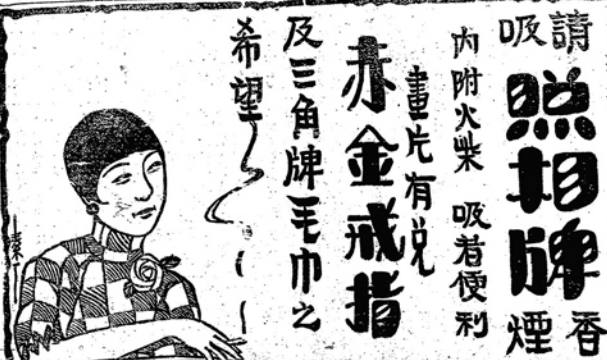 請吸
照相牌
香煙
內附火柴 吸者便利
畫片有兑
赤金戒指
及三角牌毛巾之
希望